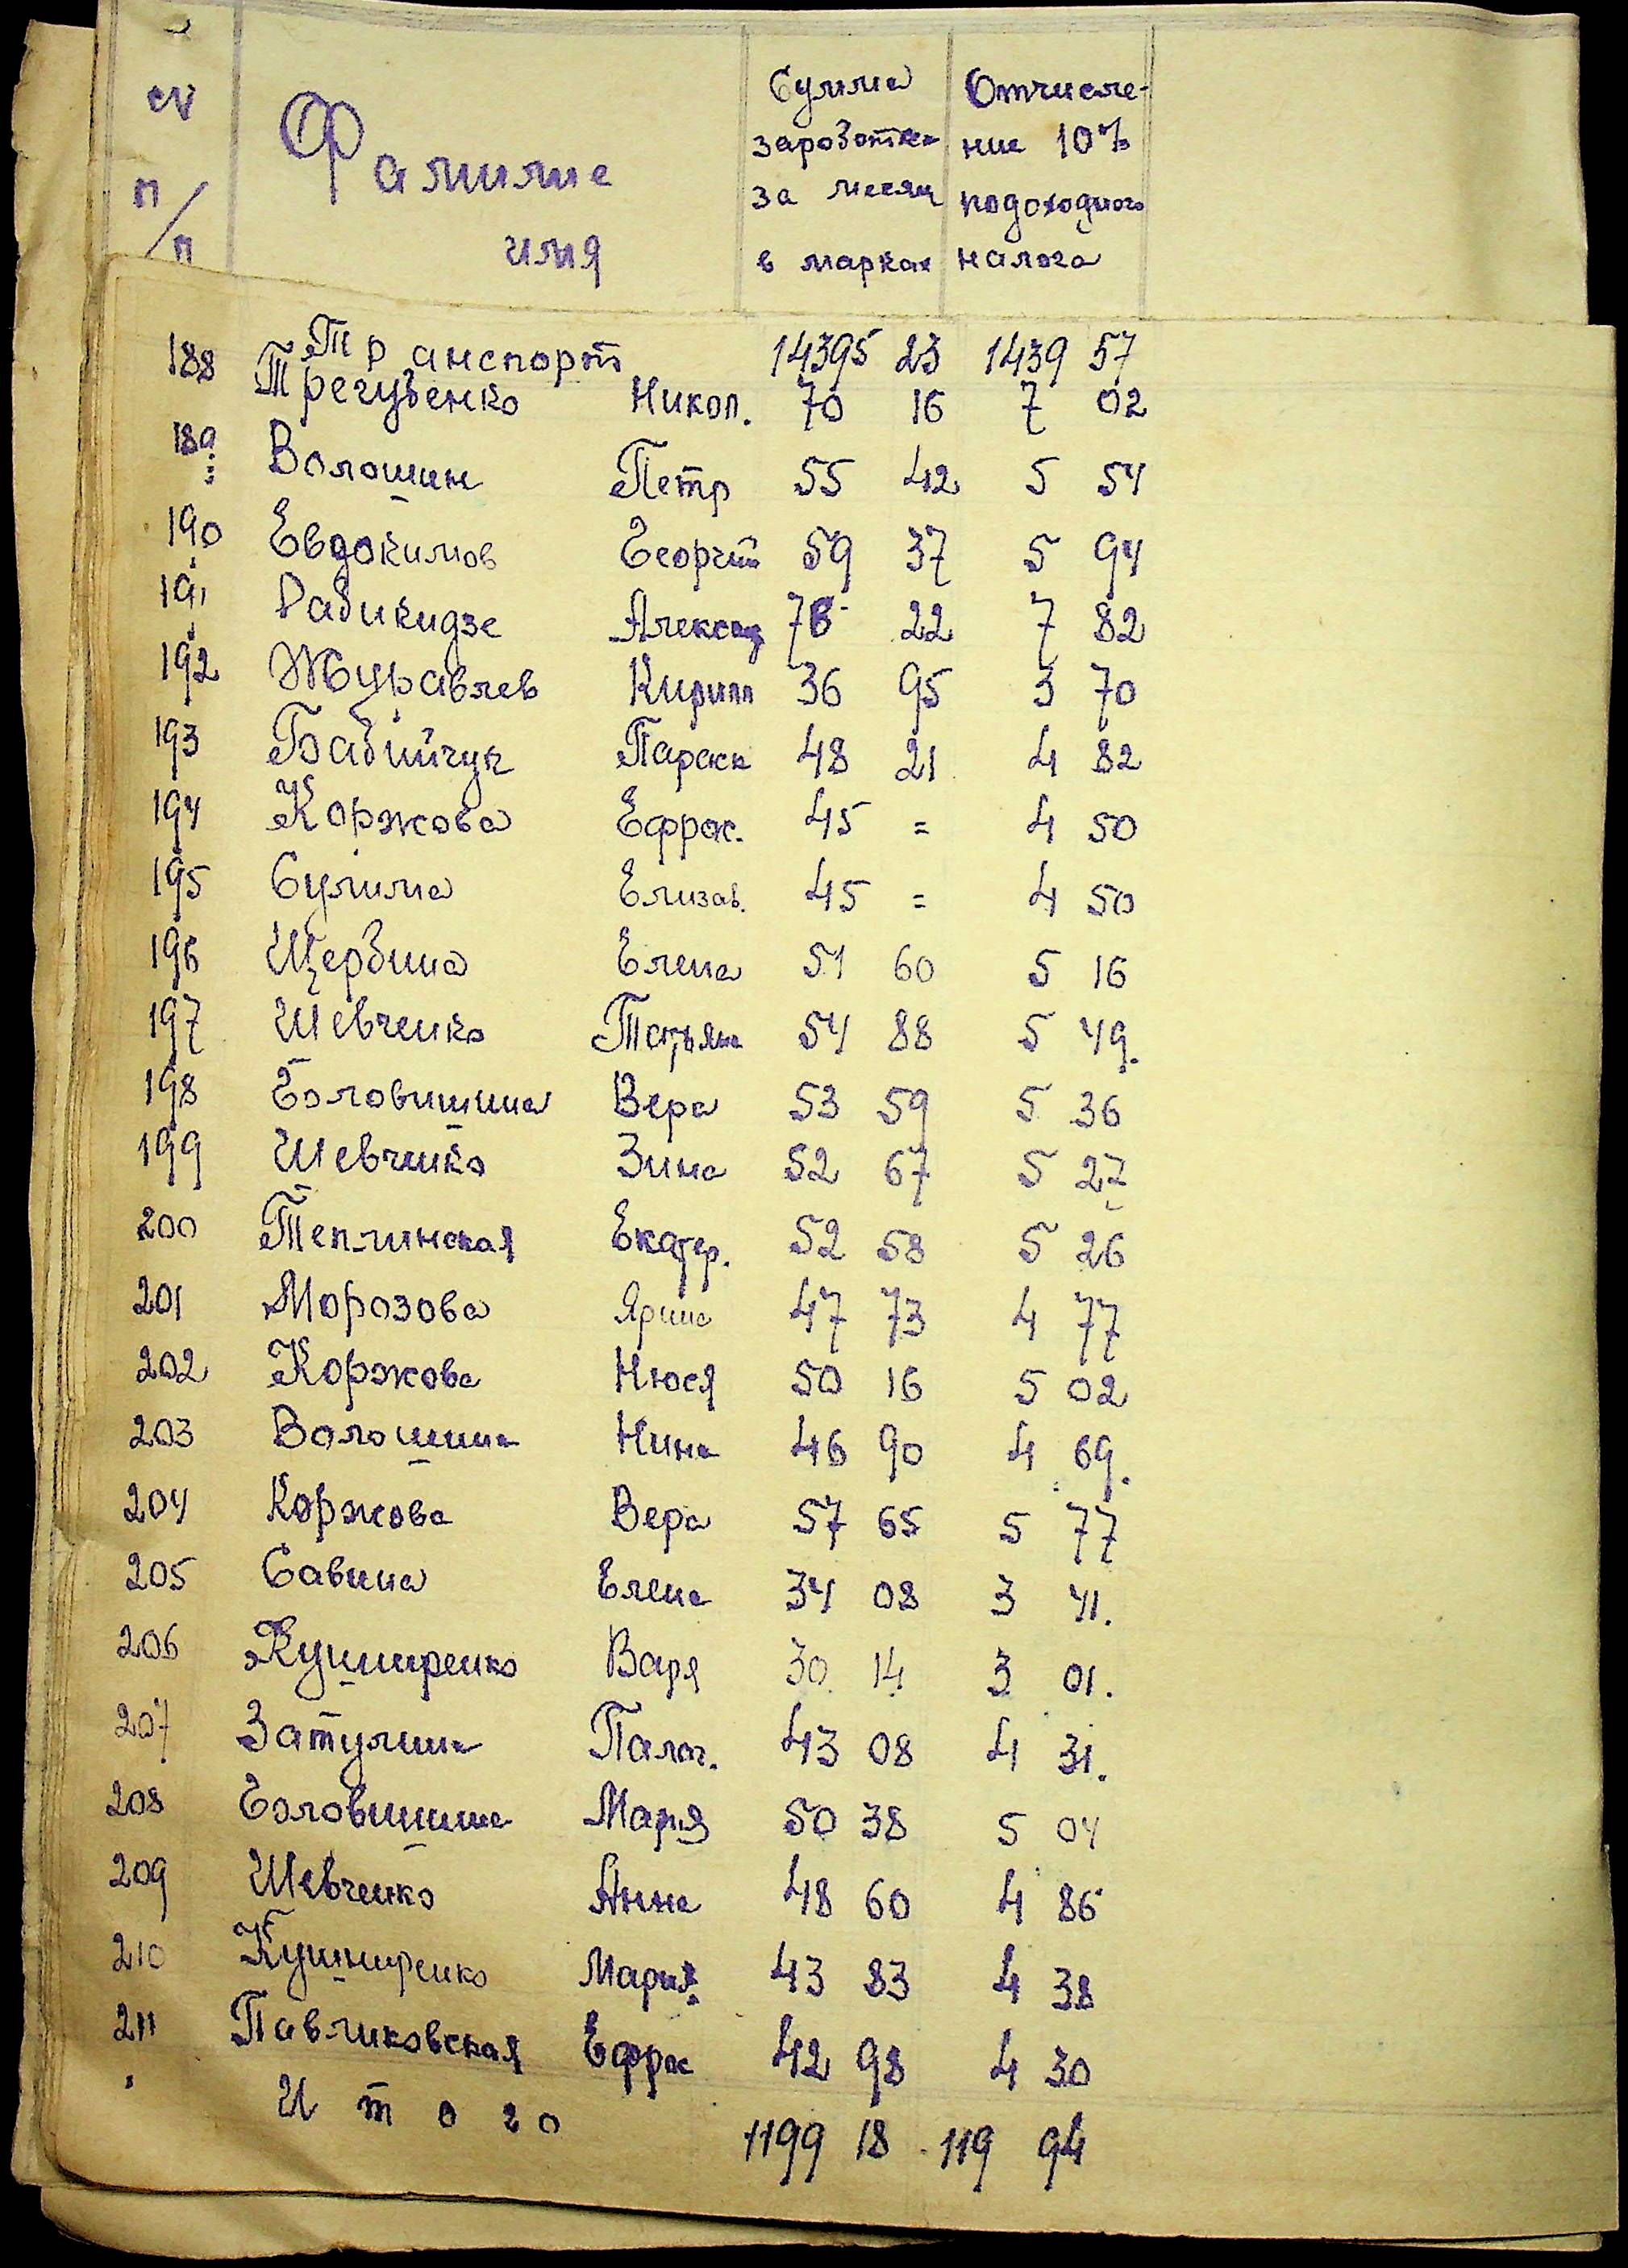 № п/п Фамилие имя Сумма заработка за месяц в марках Отчисление 10% подоходного налога
Транспорт 14395 23 1439 57
188 Трегубенко Никол. 70 16 7 02
189 Волошин Петр 55 42 5 54
190 Евдокимов Георгий 59 37 5 94
191 Рабикидзе Александ 78 22 7 82
192 Журавлев Кирилл 36 95 3 70
193 Бабийчук Параск 48 21 4 82
194 Коржова Ефрос. 45 = 4 50
195 Сулима Елизав. 45 = 4 50
196 Щербина Елена 51 60 5 16
197 Шевченко Татьяна 54 88 5 49.
198 Головишина Вера 53 59 5 36
199 Шевченко Зина 52 67 5 27
200 Теплинская Екатер. 52 58 5 26
201 Морозова Ярина 47 73 4 77
202 Коржова Нюся 50 16 5 02
203 Волошина Нина 46 90 4 69.
204 Коржова Вера 57 65 5 77
205 Савина Елена 34 08 3 41.
206 Кушниренко Варя 30 14 3 01.
207 Затулина Палаг. 43 08 4 31.
208 Головишина Мария 50 38 5 04
209 Шевченко Анна 48 60 4 86
210 Кушниренко Мария 43 83 4 38
211 Павликовская Ефрос 42 98 4 30
Итого 1199 18 119 94